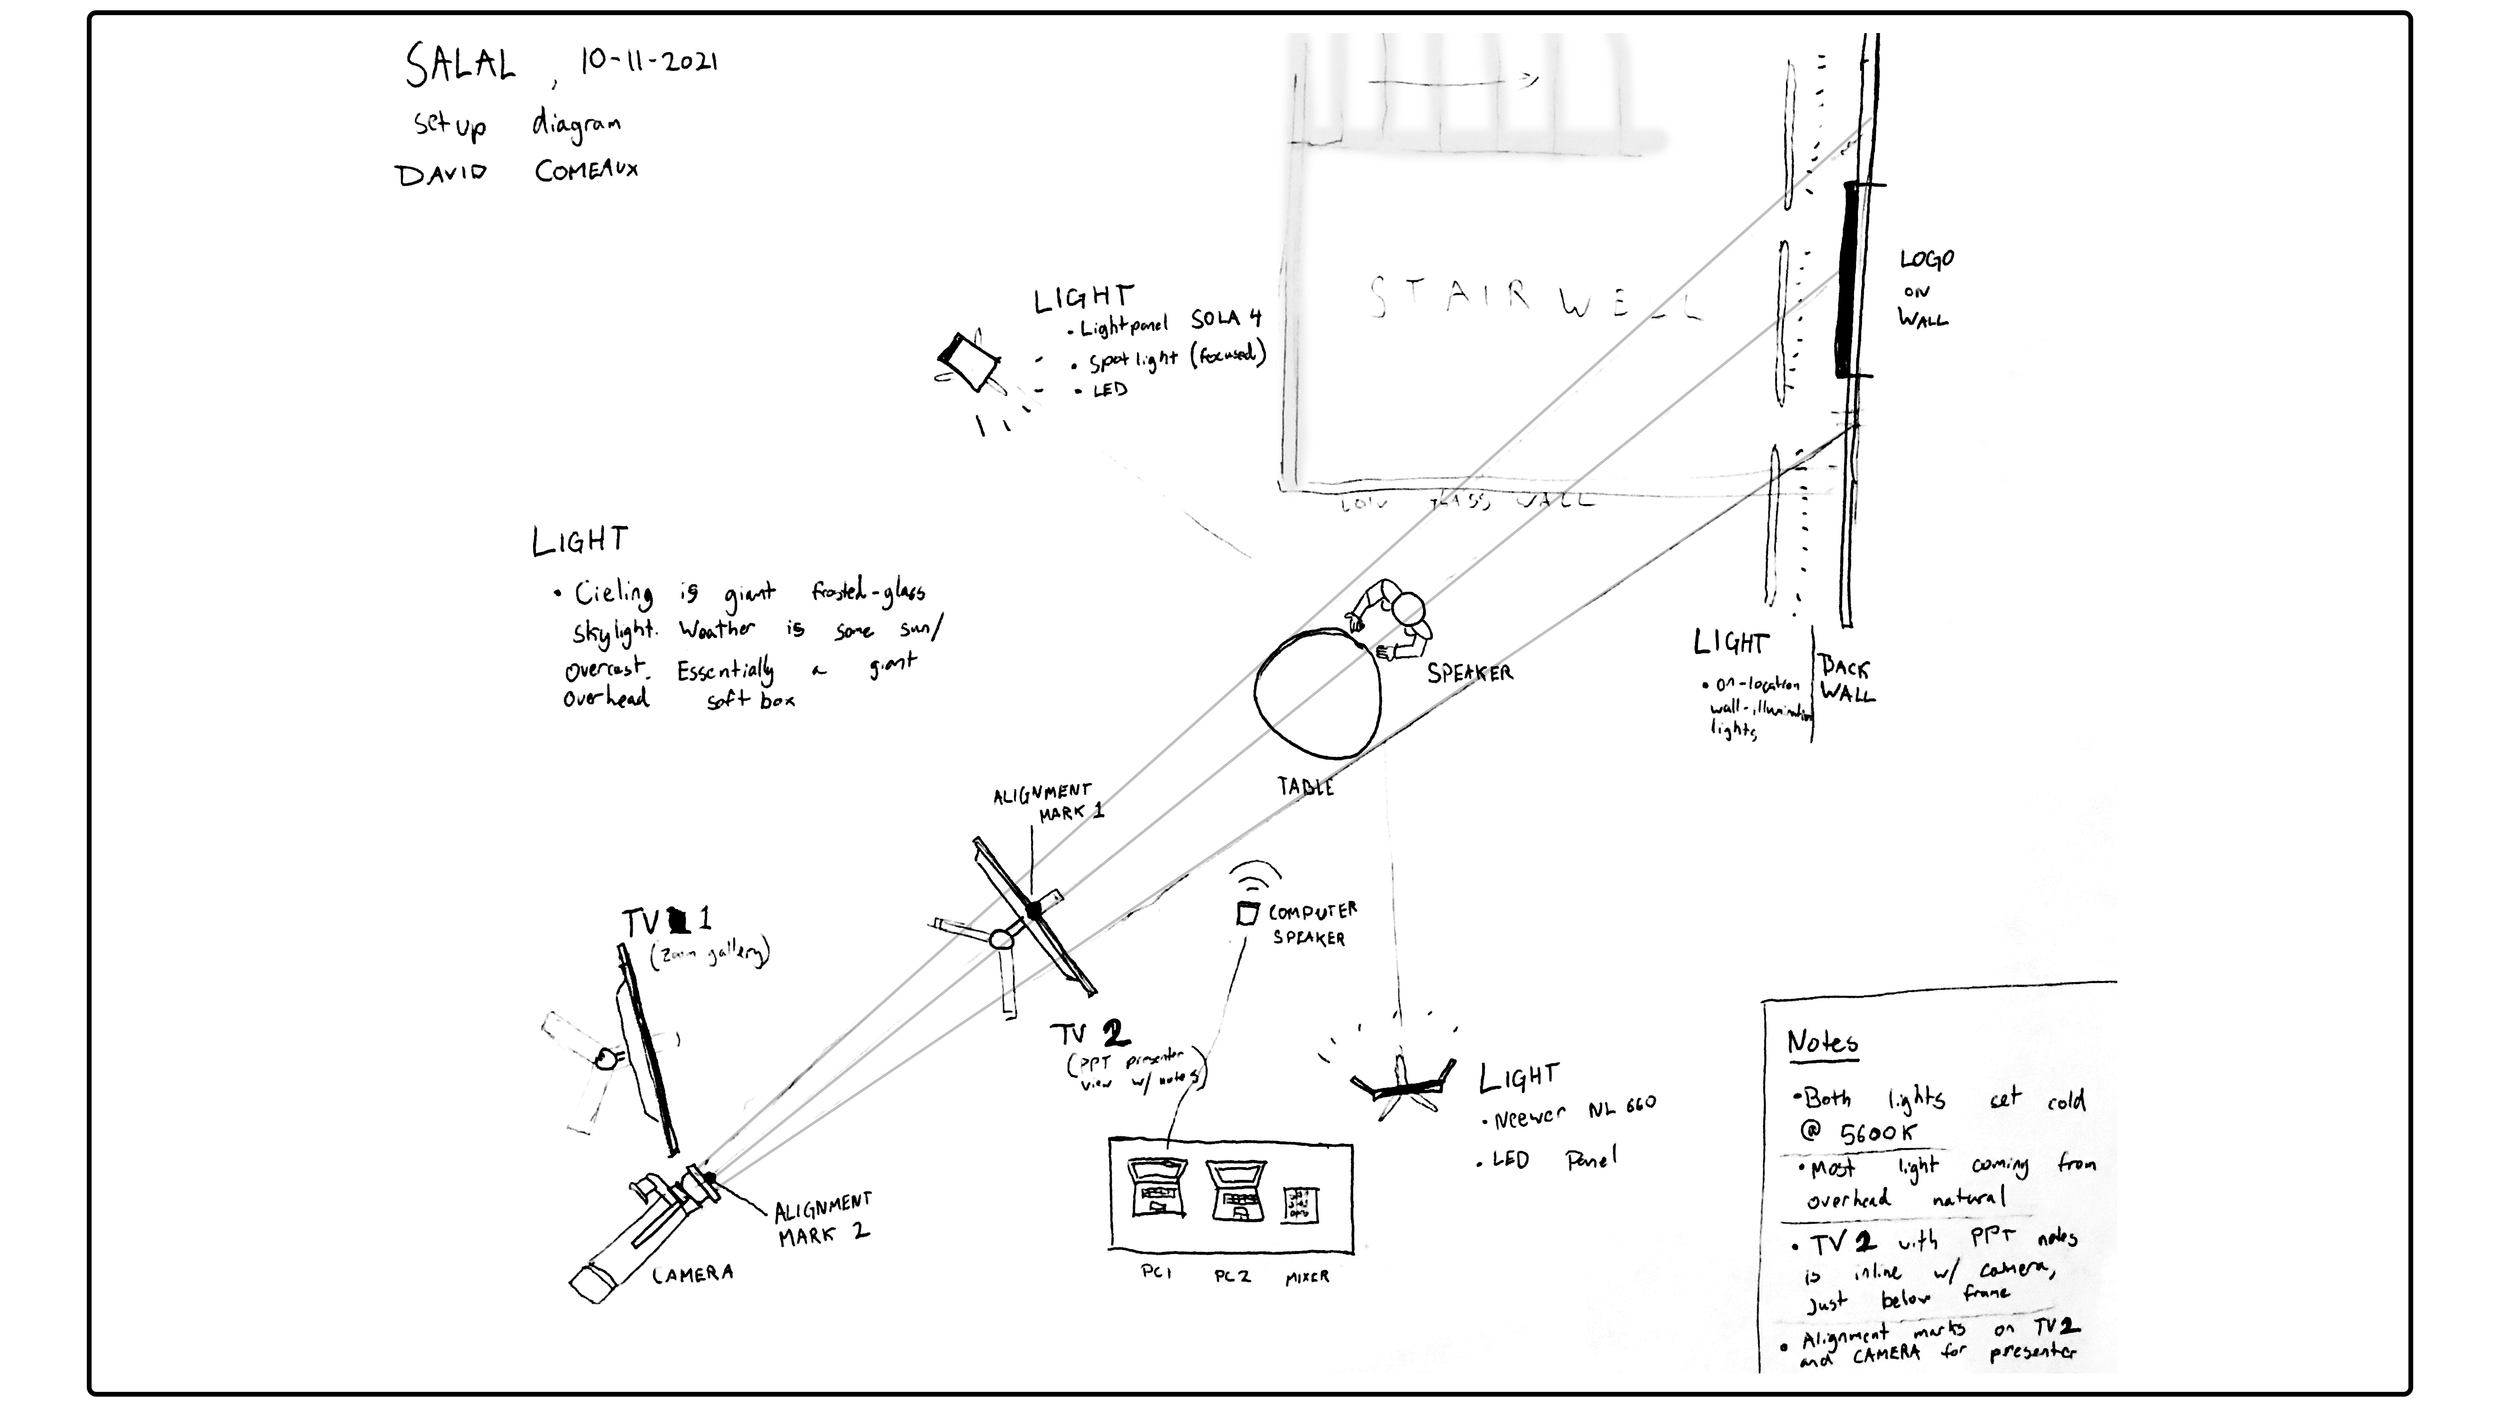 SALAL, 10-11-2021
setup diagram
DAVID COMEAUX
LIGHT
• Lightpanel SOLA 4
• Spotlight (focused)
• LED
STAIRWELL
LOW GLASS WALL
LOGO
ON
WALL
LIGHT
• Cieling is giant frosted-glass
skylight. Weather is some sun/
overcast. Essentially a giant
overhead softbox
SPEAKER
TABLE
LIGHT
• on-location
wall-illumination
lights
BACK
WALL
ALIGNMENT
MARK 1
TV 1
(Zoom gallery)
COMPUTER
SPEAKER
TV 2
(PPT presenter
view w/ notes)
LIGHT
• Neewer NL 660
• LED Panel
ALIGNMENT
MARK 2
CAMERA
PC1 PC2 MIXER
Notes
• Both lights set cold
@ 5600K
• Most light coming from
overhead natural
• TV 2 with PPT notes
is inline w/ camera,
just below frame
• Alignment marks on TV2
and CAMERA for presenter